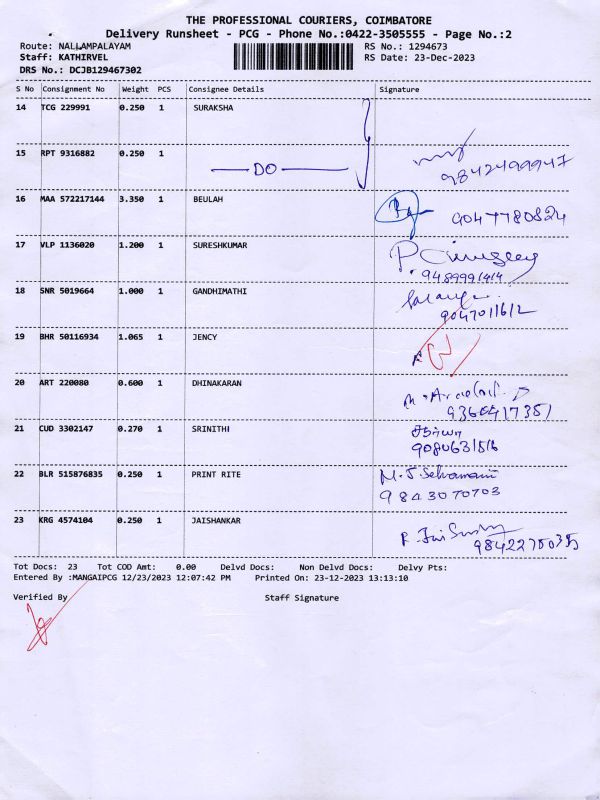 THE PROFESSIONAL COURIERS, COIMBATORE
Delivery Runsheet - PCG - Phone No.:0422-3505555 - Page No.:2
Route: NALLAMPALAYAM RS No.: 1294673
Staff: KATHIRVEL RS Date: 23-Dec-2023
DRS No.: DCJB129467302
S No Consignment No Weight PCS Consignee Details Signature
14 TCG 229991 0.250 1 SURAKSHA
15 RPT 9316882 0.250 1
DO 9842499947
16 MAA 572217144 3.350 1 BEULAH
9047780824
17 VLP 1136020 1.200 1 SURESHKUMAR
9489991414
18 SNR 5019664 1.000 1 GANDHIMATHI
9047011612
19 BHR 50116934 1.065 1 JENCY
20 ART 220080 0.600 1 DHINAKARAN
9360417351
21 CUD 3302147 0.270 1 SRINITHI
9080631516
22 BLR 515876835 0.250 1 PRINT RITE M.J. Selvamani
9843070703
23 KRG 4574104 0.250 1 JAISHANKAR
9842270035
Tot Docs: 23 Tot COD Amt: 0.00 Delvd Docs: Non Delvd Docs: Delvy Pts:
Entered By :MANGAIPCG 12/23/2023 12:07:42 PM Printed On: 23-12-2023 13:13:10
Verified By Staff Signature